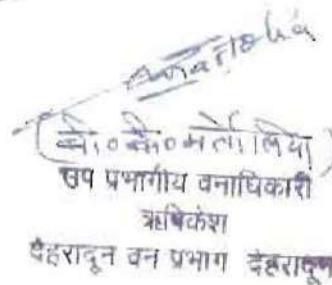 (के०के०मर्तोलिया)
उप प्रभागीय वनाधिकारी
ऋषिकेश
देहरादून वन प्रभाग देहरादून